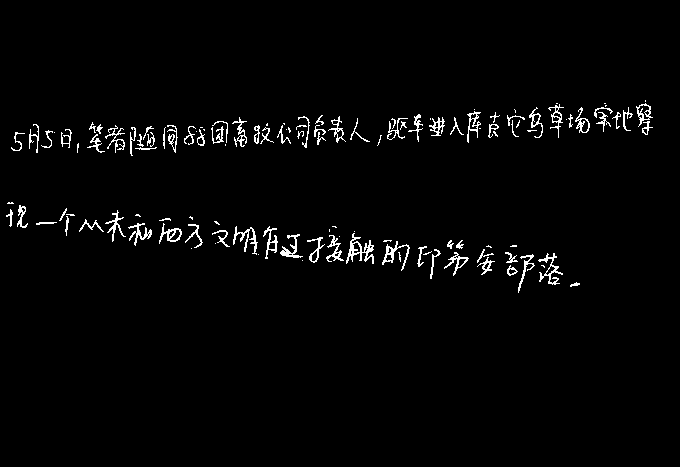 5月5日,笔者随同88团畜牧公司负责人,驱车进入库克它乌草场实地察
现一个从未和西方文明有过接触的印第安部落.